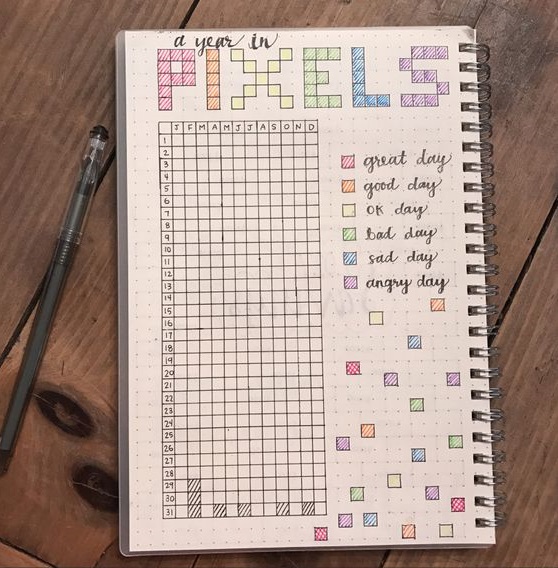 a year in
PIXELS
J F M A M J J A S O N D
1
2
3
4
5
6
7
8
9
10
11
12
13
14
15
16
17
18
19
20
21
22
23
24
25
26
27
28
29
30
31
great day
good day
OK day
Bad day
sad day
angry day